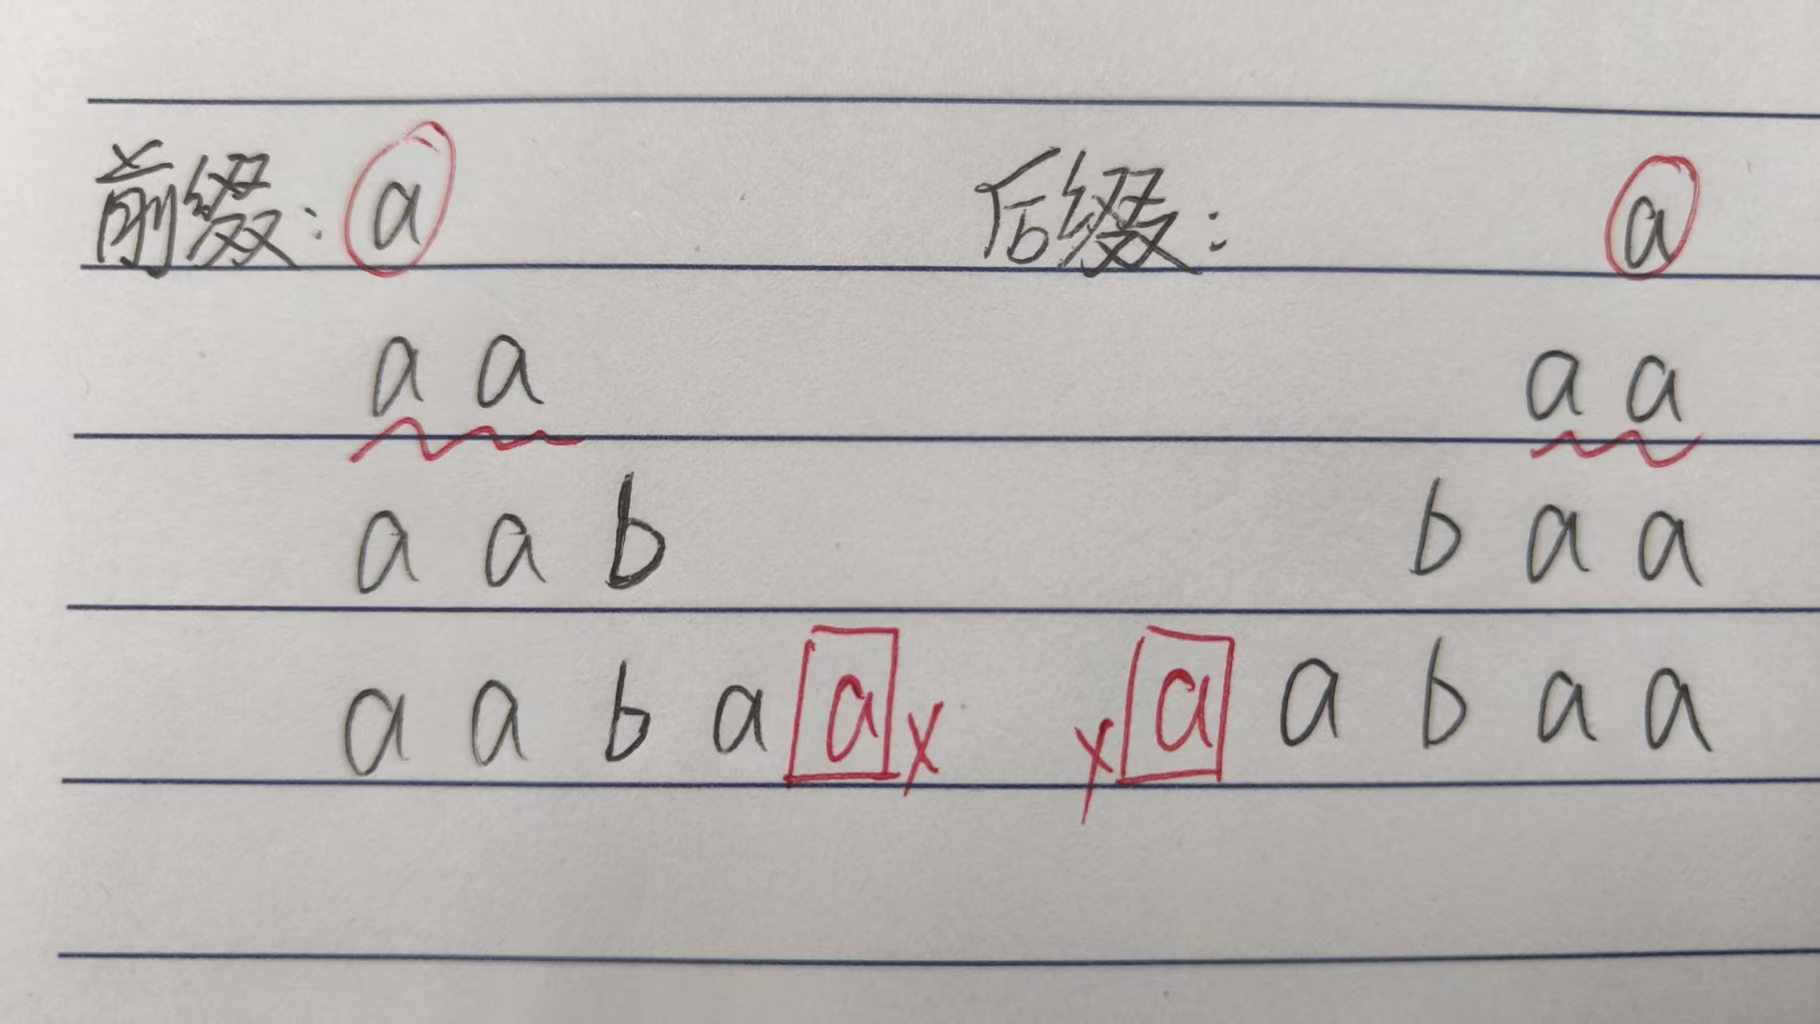 前缀: a 后缀: a
a a a a
a a b b a a
a a b a a x x a a b a a